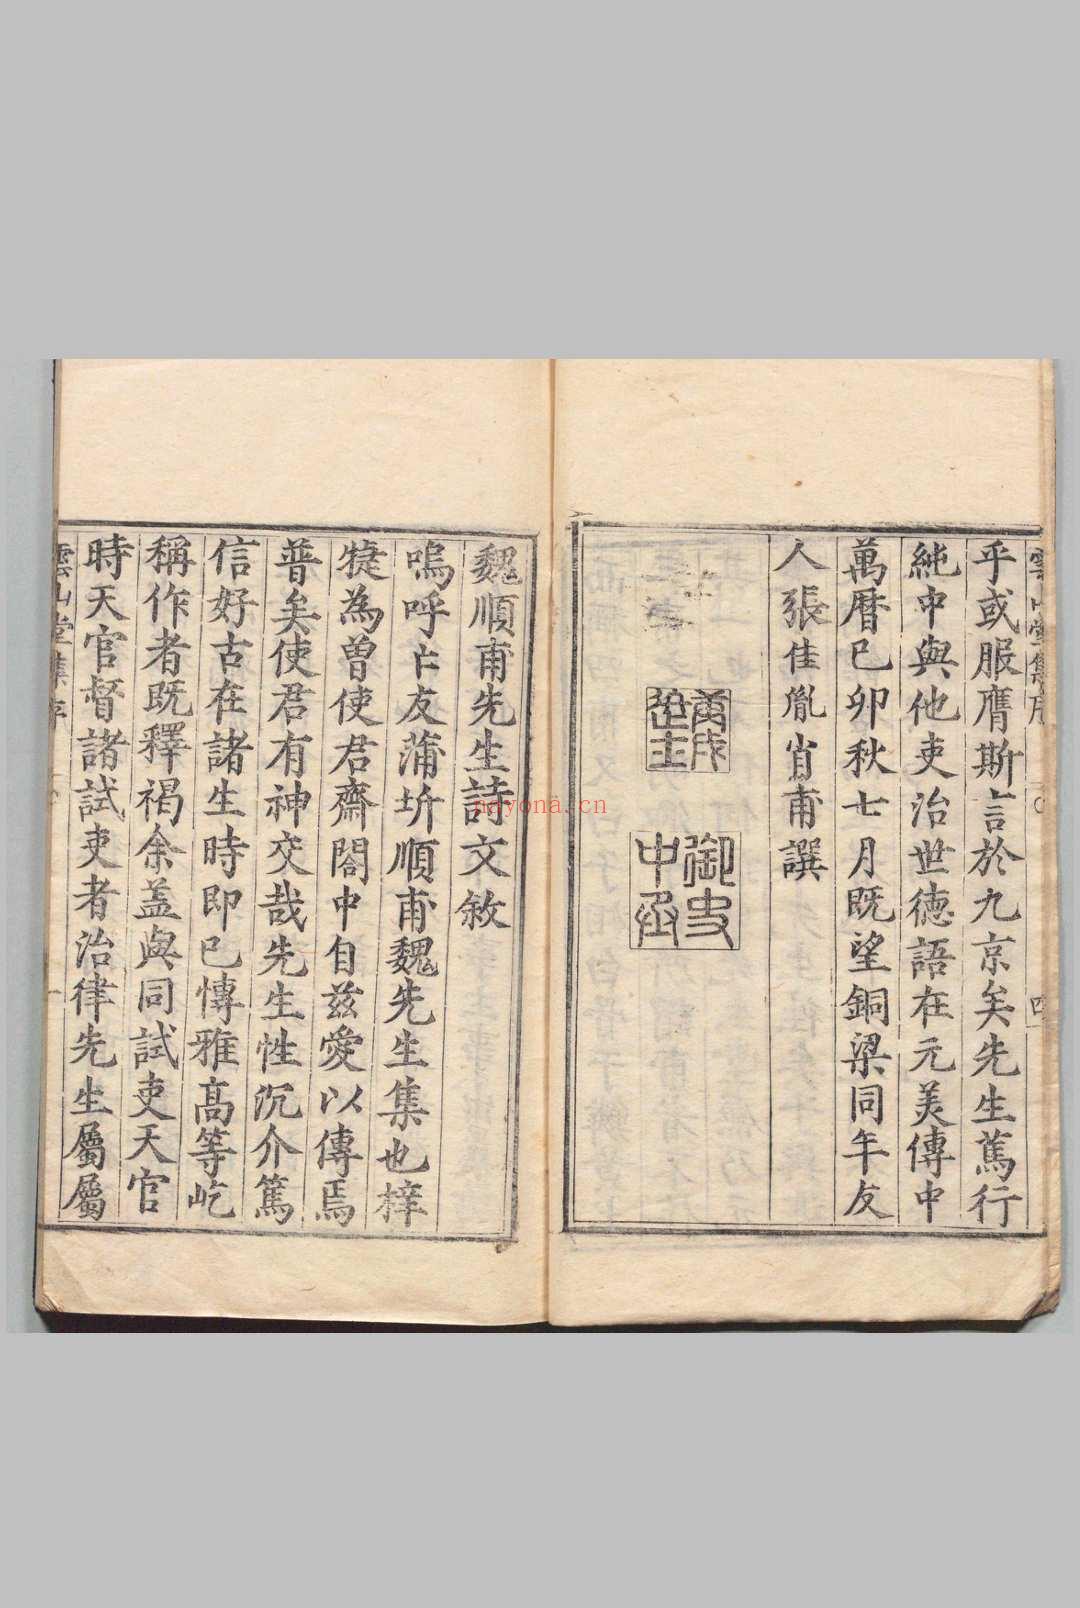 雲山堂集序
四
乎或服膺斯言於九京矣先生篤行
純中與他吏治世德語在元美傳中
萬曆己卯秋七月既望銅梁同年友
人張佳胤肖甫譔
御史中丞
魏順甫先生詩文敘
嗚呼亡友蒲圻順甫魏先生集也梓
犍為曾使君齋閤中自兹愛以傳焉
普矣使君有神交哉先生性沉介篤
信好古在諸生時即已愽雅高等屹
稱作者既釋褐余盖與同試吏天官
時天官督諸試吏者治律先生屬屬
雲山堂集序
一
nayona.cn